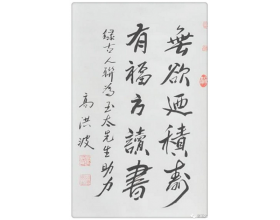 無欲迺積壽
有福方讀書
録古人聯為玉太先生助力
高洪波